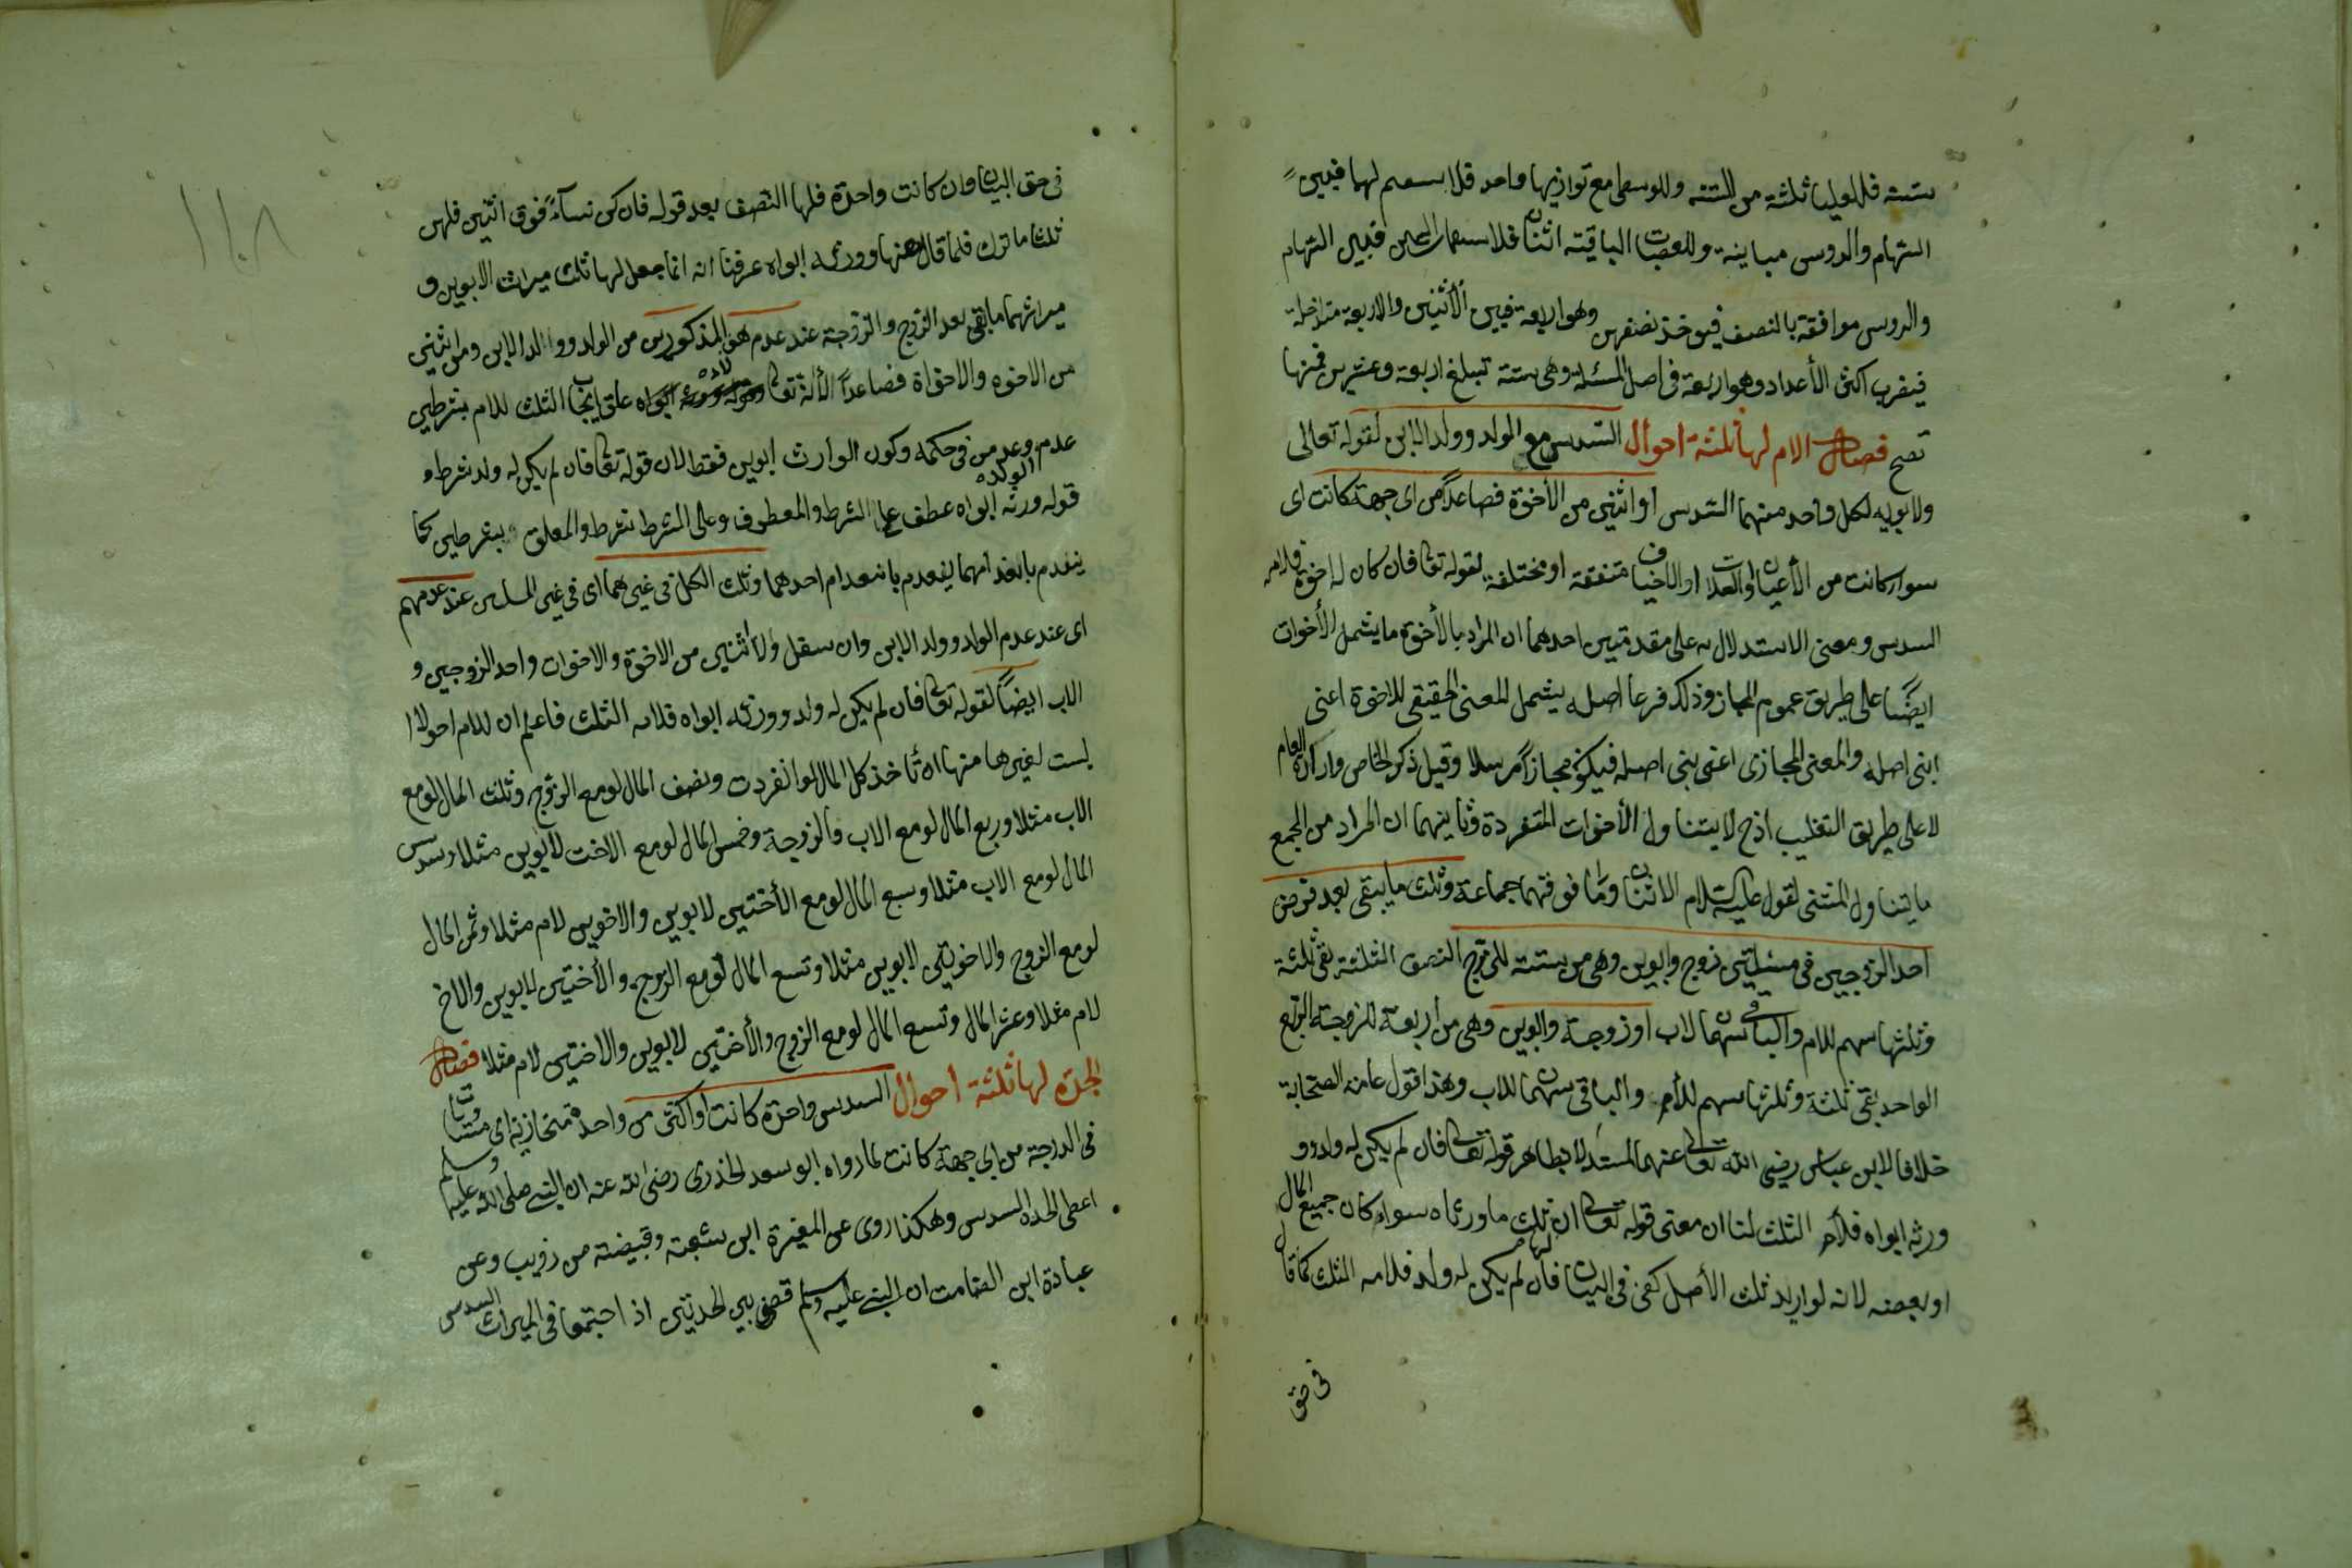 ستة فللعليا ثلثة من الستة وللوسطى مع توازيها واحد فلا سهم لهما فبين
السهام والروس مباينة وللعصبات الباقية اثنان فلا فبين السهام
والروس موافقة بالنصف فيوخذ نصفهن وهو اربعة فبين الأثنين والاربعة متداخلة
فيضرب اكثر الأعداد وهو اربعة فى اصل المسئلة وهى ستة تبلغ اربعة وعشرين فمنها
تصح فصل الام لها ثلثة احوال السدس مع الولد وولد الابن لقوله تعالى
ولابويه لكل واحد منهما السدس او اثنين من الأخوة فصاعداً من اى جهة كانت اى
سواء كانت من الأعيان او العلات او الاخياف متفقة او مختلفة لقوله تعا فان كان له اخوة فلامه
السدس ومعنى الاستدلال به على مقدمتين احدهما ان المراد بالأخوة ما يشمل الأخوات
ايضًا على طريق عموم المجاز وذلك فرعا اصله يشمل المعنى الحقيقى للاخوة اعنى
ابنى اصله والمعنى المجازى اعنى بنى اصله فيكون مجازاً مرسلا وقيل ذكر الخاص واراد العام
لا على طريق التغليب اذ ح لا يتناول الأخوات المتفردة وثانيهما ان المراد من الجمع
ما يتناول المثنى لقوله عليه السلام الاثنان وما فوقهما جماعة وثلث ما يبقى بعد فرض
احد الزوجين فى مسئلتين زوج وابوين وهى من ستة للزوج النصف الثلثة بقى ثلثة
وثلثها سهم للام والباقى سهمان لاب او زوجة وابوين وهى من أربعة للزوجة الربع
الواحد بقى ثلثة وثلثها سهم للأم والباقى سهمان للاب وهذا قول عامة الصحابة
خلافا لابن عباس رضى الله تعالى عنهما المستدلا بظاهر قوله تعالى فان لم يكن له ولد و
ورثه ابواه فلأمه الثلث لنا ان معنى قوله تعالى ان ثلث ما ورثاه سواء كان جميع المال
او بعضه لانه لو اريد ثلث الأصل كفى فى البيان فان لم يكن له ولد فلامه الثلث كما قال
فى حق
١٠٨
فى حق البنات وان كانت واحدة فلها النصف بعد قوله فان كن نساءً فوق اثنتين فلهن
ثلثا ما ترك فلما قال ههنا وورثه ابواه عرفنا انه انما جعل لها ثلث ميراث الابوين و
ميراثهما ما بقى بعد الزوج والزوجة عند عدم هؤ المذكورين من الولد وولد الابن ومن اثنين
من الاخوه والاخواة فصاعداً لأنه تعا علق ايجاب الثلث للام بشرطين
عدم الولد وعدم من فى حكمه وكون الوارث ابوين فقط لان قوله تعا فان لم يكن له ولد شرط و
قوله ورثه ابواه عطف على الشرط والمعطوف وعلى الشرط شرط والمعلق بشرطين كما
ينعدم بانعدامهما ينعدم بانعدام احدهما وثلث الكل فى غيرهما اى فى غير المسئلتين عند عدمهم
اى عند عدم الولد وولد الابن وان سفل والأثنين من الاخوة والاخوات واحد الزوجين و
الاب ايضاً لقوله تعا فان لم يكن له ولد وورثه ابواه فلامه الثلث فاعلم ان للام احولاا
ليست لغيرها منها انه تأخذ كل المال لو انفردت ونصف المال لو مع الزوج وثلث المال لو مع
الاب مثلا وربع المال لو مع الاب والزوجة وخمس المال لو مع الاخت لابوين مثلا وسدس
المال لو مع الاب مثلا وسبع المال لو مع الأختين لابوين والاخوين لام مثلا وثمن المال
لو مع الزوج والاخوتين لابوين مثلا وتسع المال لو مع الزوج والأختين لابوين والاخ
لام مثلا وعشر المال وتسع المال لو مع الزوج والأختين لابوين والاختين لام مثلا فصل
الجدة لها ثلثة احوال السدس واحدة كانت او اكثر من واحدة متحازية اى متساوية
فى الدرجة من اى جهة كانت لما رواه ابو سعد الخذرى رضى الله عنه ان النبى صلى الله عليه وسلم
اعطى الجدة السدس وهكذا روى عن المغيرة ابن شعبة وقبيضة من ذويب وعن
عبادة ابن الصامت ان النبى عليه وسلم قضى بين الجدتين اذ اجتمعا فى الميراث السدس